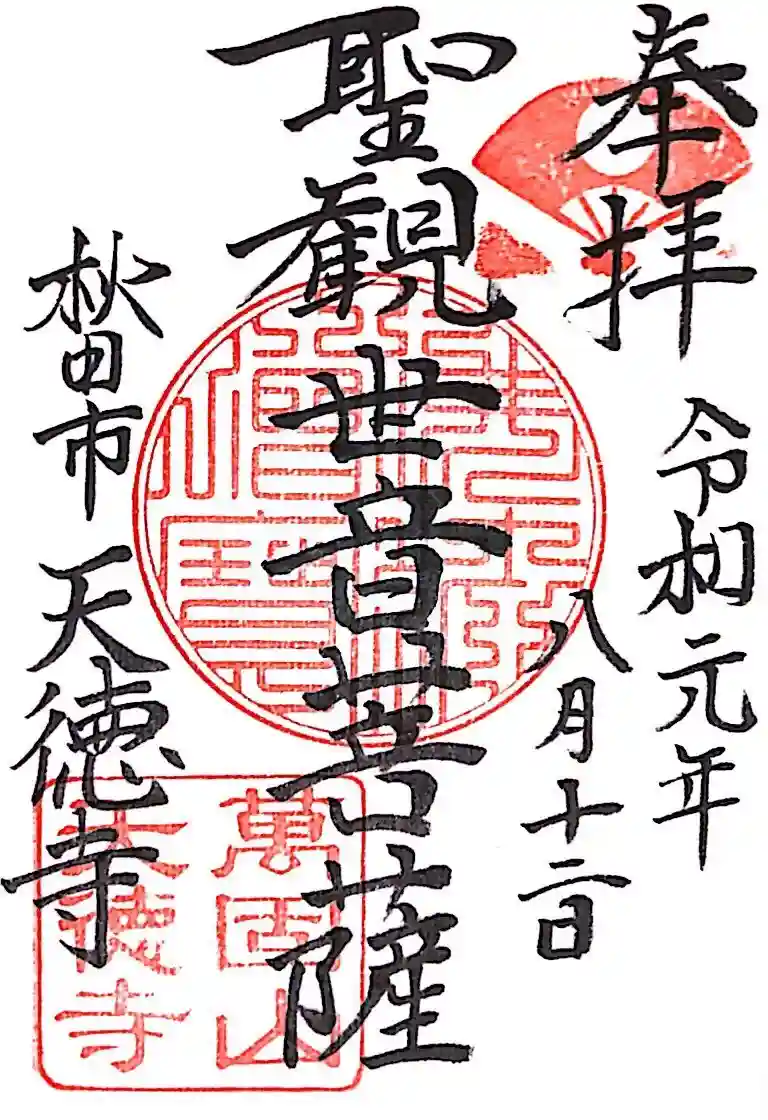 奉拝
令和元年
八月十二日
聖観世音菩薩
秋田市 天徳寺
萬固山
天徳寺